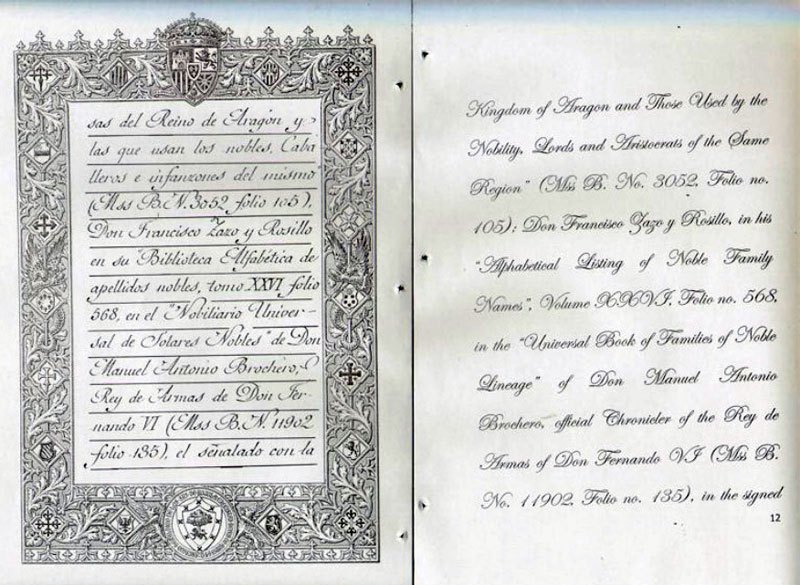 sas del Reino de Aragón y
las que usan los nobles, Caba
lleros e infanzones del mismo"
(Mss B.N. 3052 folio 105),
Don Francisco Zazo y Rosillo
en su "Biblioteca Alfabética de
apellidos nobles, tomo XXVI folio
568, en el "Nobiliario Univer-
sal de Solares Nobles" de Don
Manuel Antonio Brochero,
Rey de Armas de Don Fer-
nando VI (Mss B.N. 11902
folio 135), el señalado con la
Kingdom of Aragon and Those Used by the
Nobility, Lords and Aristocrats of the Same
Region" (Mss B. No. 3052, Folio no.
105); Don Francisco Zazo y Rosillo, in his
"Alphabetical Listing of Noble Family
Names", Volume XXVI, Folio no. 568,
in the "Universal Book of Families of Noble
Lineage" of Don Manuel Antonio
Brochero, official Chronicler of the Rey de
Armas of Don Fernando VI (Mss B.
No. 11902, Folio no. 135), in the signed
12